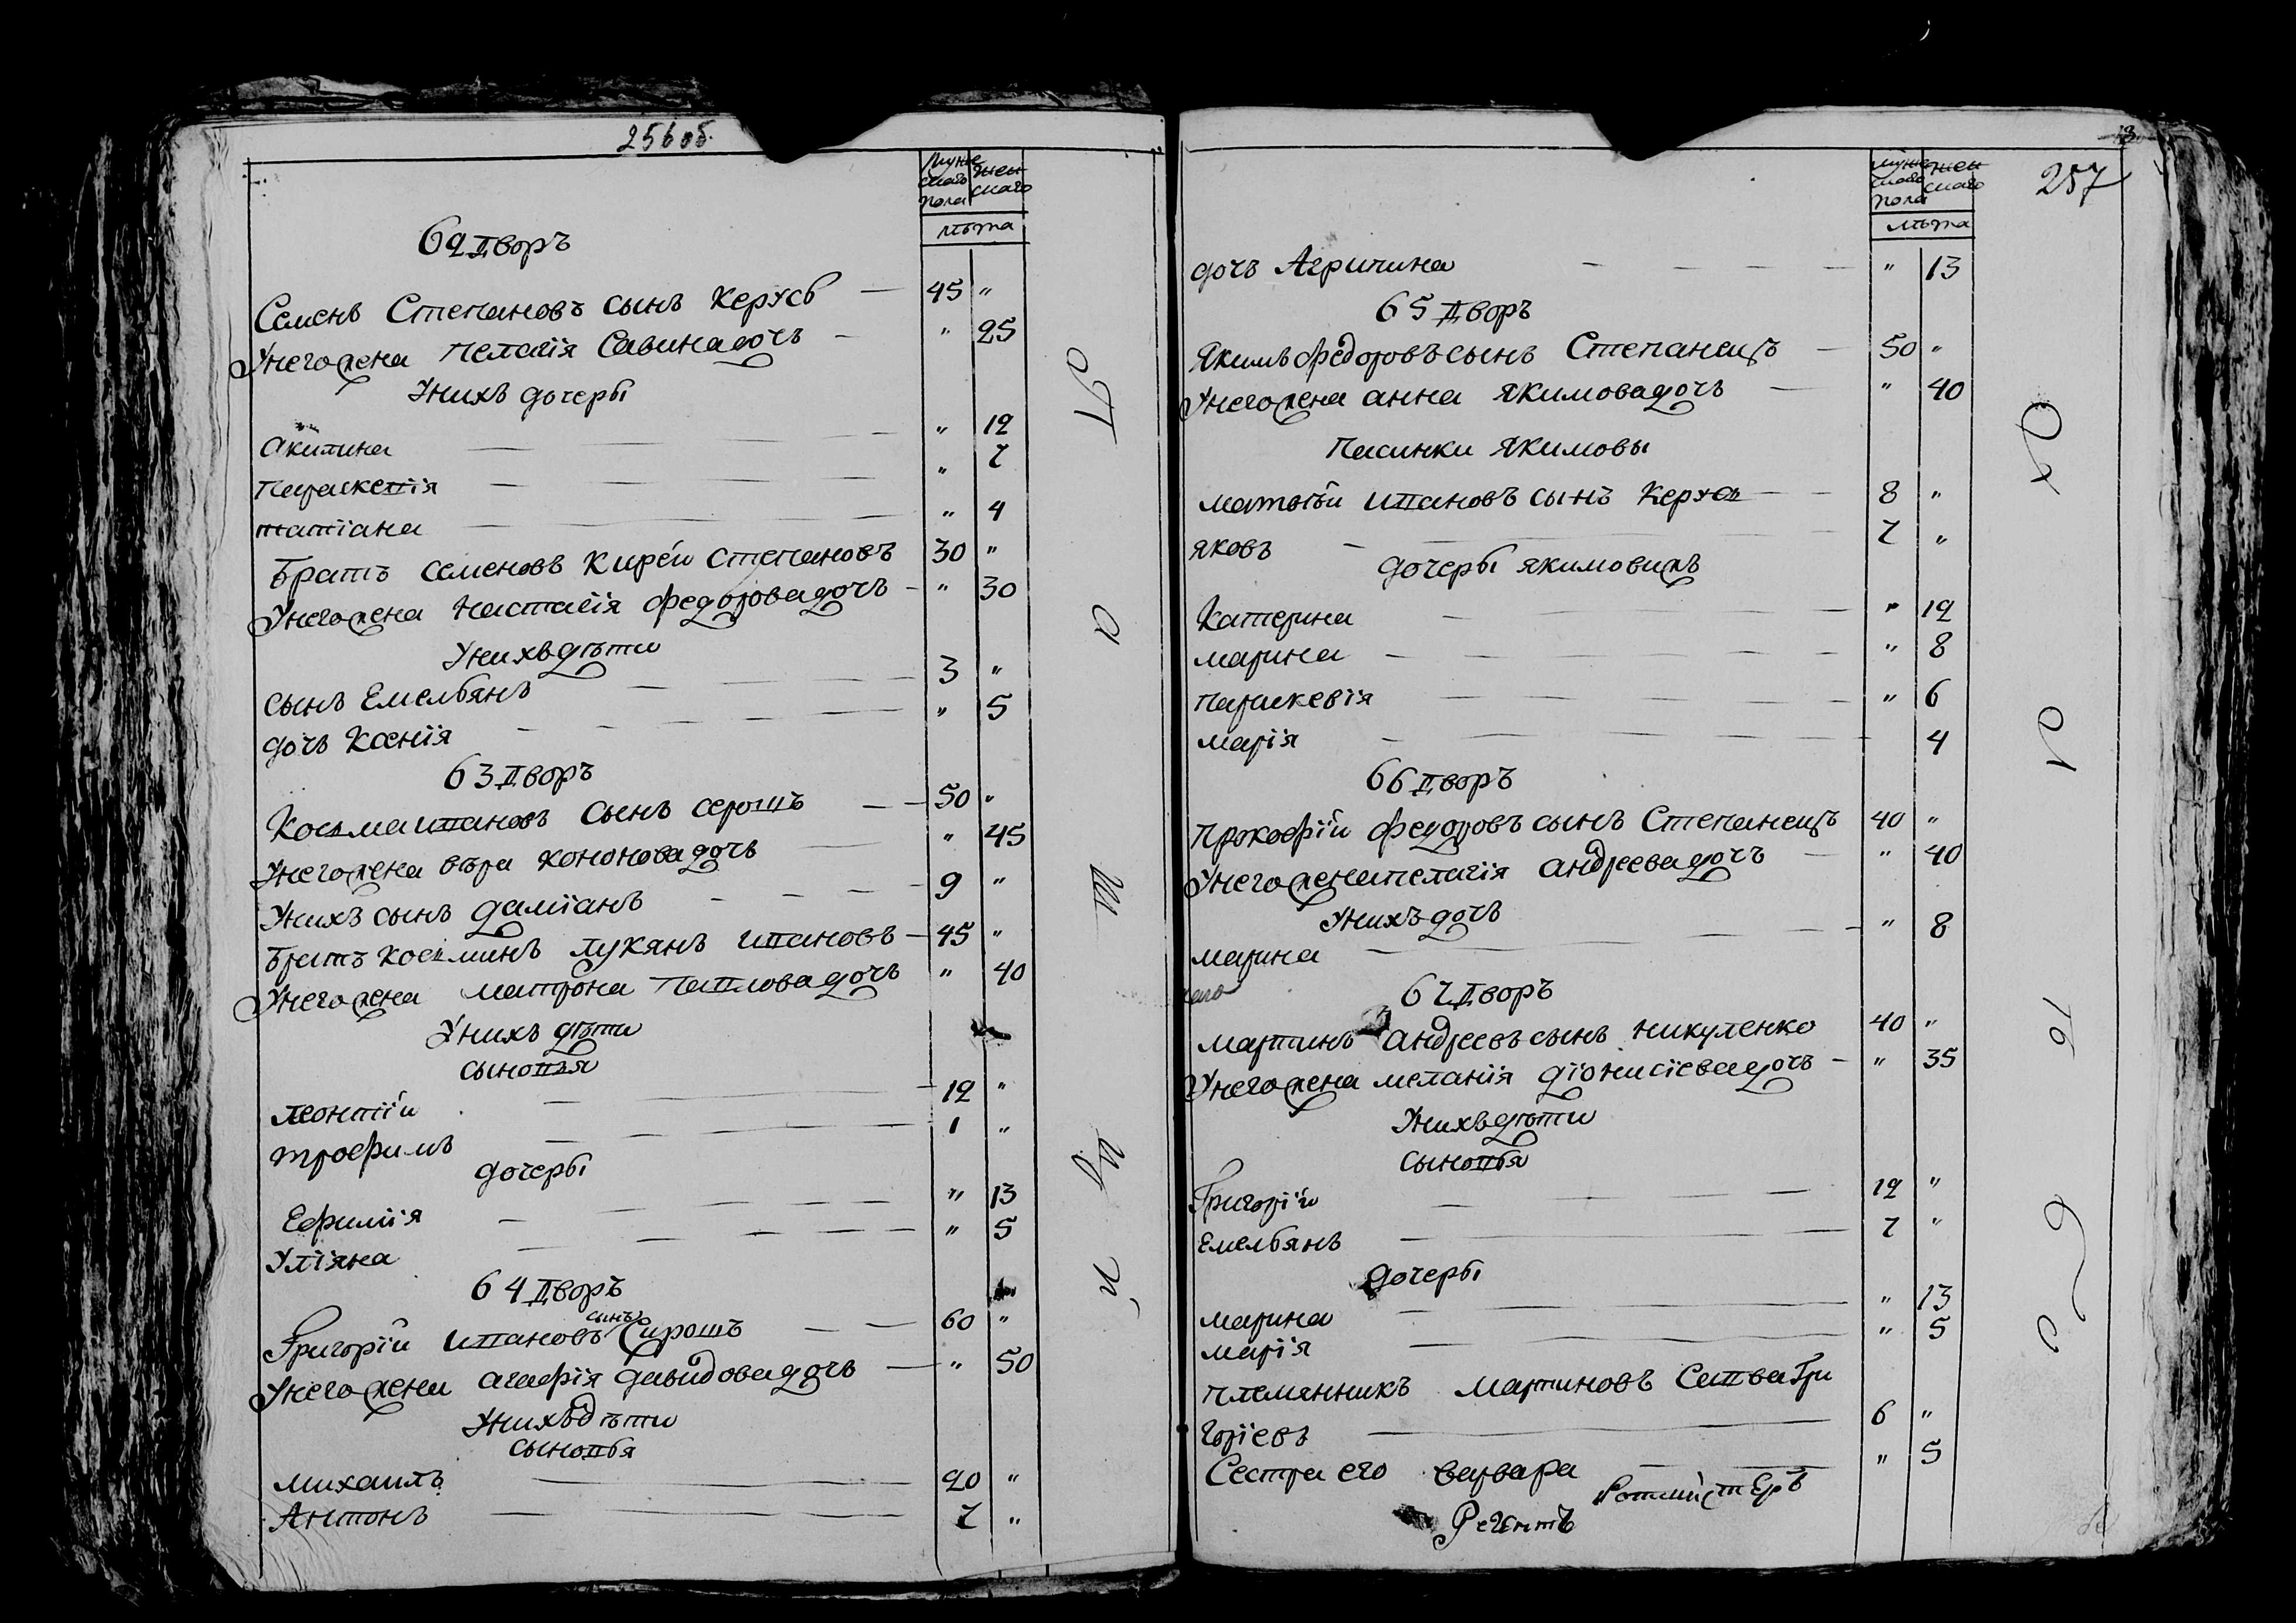 256 об.
Мужескаго пола
Женскаго
лѣта
62 Дворъ
Семенъ Степановъ сынъ Керусъ — 45 "
У него жена Пелагія Савина дочь — " 25
У нихъ дочеры
Акилина " 12
Параскевія " 7
Татіана " 4
Братъ Семеновъ Кирей Степановъ 30 "
У него жена Настасія Федорова дочь — " 30
У нихъ дѣти
сынъ Емельянъ 3 "
дочь Ксенія " 5
63 Дворъ
Козма Ивановъ сынъ Серошъ — 50 "
У него жена Вѣра Кононова дочь " 45
У нихъ сынъ Даміанъ 9 "
Братъ Козминъ Лукянъ Ивановъ — 45 "
У него жена Матрона Павлова дочь " 40
У нихъ дѣти
сыновья
Леонтій 12 "
Трофимъ 1 "
дочеры
Ефимія " 13
Уліяна " 5
64 Дворъ
Григорій Ивановъ сынъ Сирошъ 60 "
У него жена Агафія Давидова дочь — " 50
У нихъ дѣти
сыновья
Михаилъ 20 "
Антонъ 7 "
257
Мужескаго пола
Женскаго
лѣта
дочь Агрипина " 13
65 Дворъ
Якимъ Федоровъ сынъ Степанецъ — 50 "
У него жена Анна Якимова дочь — " 40
Пасинки Якимовы
Матвѣй Ивановъ сынъ Керусъ 8 "
Яковъ 7 "
Дочеры Якимовихъ
Катерина " 12
Марина " 8
Параскевія " 6
Марія 4
66 Дворъ
Прокофій Федоровъ сынъ Степанецъ 40 "
У него жена Пелагія Андреева дочь — " 40
У нихъ дочь
Марина " 8
67 Дворъ
Мартинъ Андреевъ сынъ Никуленко 40 "
У него жена Меланія Діонисіева дочь — " 35
У нихъ дѣти
сыновья
Григорій 12 "
Емельянъ 7 "
Дочеры
Марина " 13
Марія " 5
Племянникъ Мартиновъ Савва Гри
горіевъ 6 "
Сестра его Варвара " 5
Ротмистеръ
Регентъ